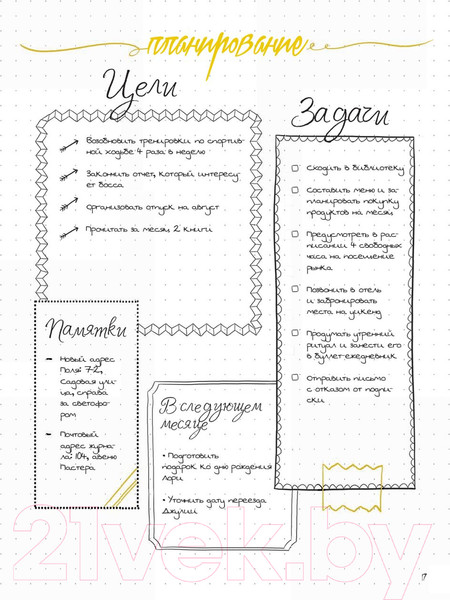 планирование
Цели
Возобновить тренировки по спортив-
ной ходьбе 4 раза в неделю
Закончить отчет, который интересу-
ет босса
Организовать отпуск на август
Прочитать за месяц 2 книги
Задачи
Сходить в библиотеку
Составить меню и за-
планировать покупку
продуктов на месяц
Предусмотреть в рас-
писании 4 свободных
часа на посещение
рынка
Позвонить в отель
и забронировать
места на уикенд
Продумать утренний
ритуал и занести его
в буллет-ежедневник
Отправить письмо
с отказом от подпи-
ски
Памятки
- Новый адрес
Поля: 72,
Садовая ули-
ца, справа
за светофо-
ром
- Почтовый
адрес журна-
ла: 104, авеню
Пастера
В следующем
месяце
• Подготовить
подарок ко дню рождения
Лори
• Уточнить дату переезда
Джулии
21vek.by
17